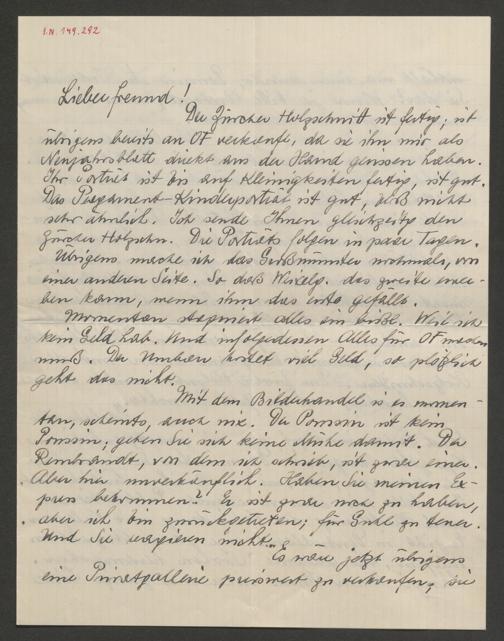 I.N. 149.292
Lieber Freund!
Der Zürcher Holzschnitt ist fertig; ist
übrigens bereits an OF verkauft, da sie ihn mir als
Neujahrsblatt direkt aus der Hand gerissen haben.
Ihr Porträt ist bis auf Kleinigkeiten fertig, ist gut.
Das Pergament-Kinderporträt ist gut, bloß nicht
sehr ähnlich. Ich sende Ihnen gleichzeitig den
Zürcher Holzschn. Die Porträts folgen in paar Tagen.
Übrigens mache ich das Großmünster nochmals, von
einer anderen Seite. So daß das zweite erwer-
ben kann, wenn ihm das erste gefällt.
Momentan stagniert alles ein bißl. Weil ich
kein Geld hab. Und infolgedessen Alles für OF machen
muß. Der Umbau kostet viel Geld, so plötzlich
geht das nicht.
Mit dem Bilderhandel is es momen-
tan, scheints, auch nix. Der Poussin ist kein
Poussin; geben Sie sich keine Mühe damit. Der
Rembrandt, von dem ich schrieb, ist zwar einer.
Aber hier unverkäuflich. Haben Sie meinen Ex-
press bekommen? Er ist zwar noch zu haben,
aber ich bin zurückgetreten; für Guld zu teuer.
Und Sie reagieren nicht. Es wäre jetzt übrigens
eine Privatgallerie preiswert zu verkaufen; sie